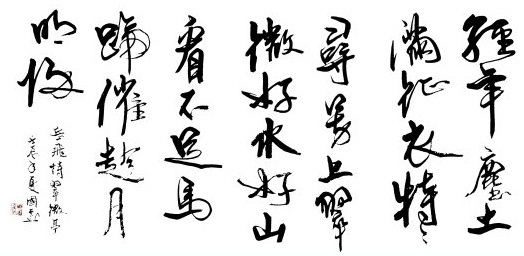 經年塵土
滿征衣特々
尋芳上翠
微好水好山
看不足馬
蹄催趁月
明归
岳飛詩翠微亭